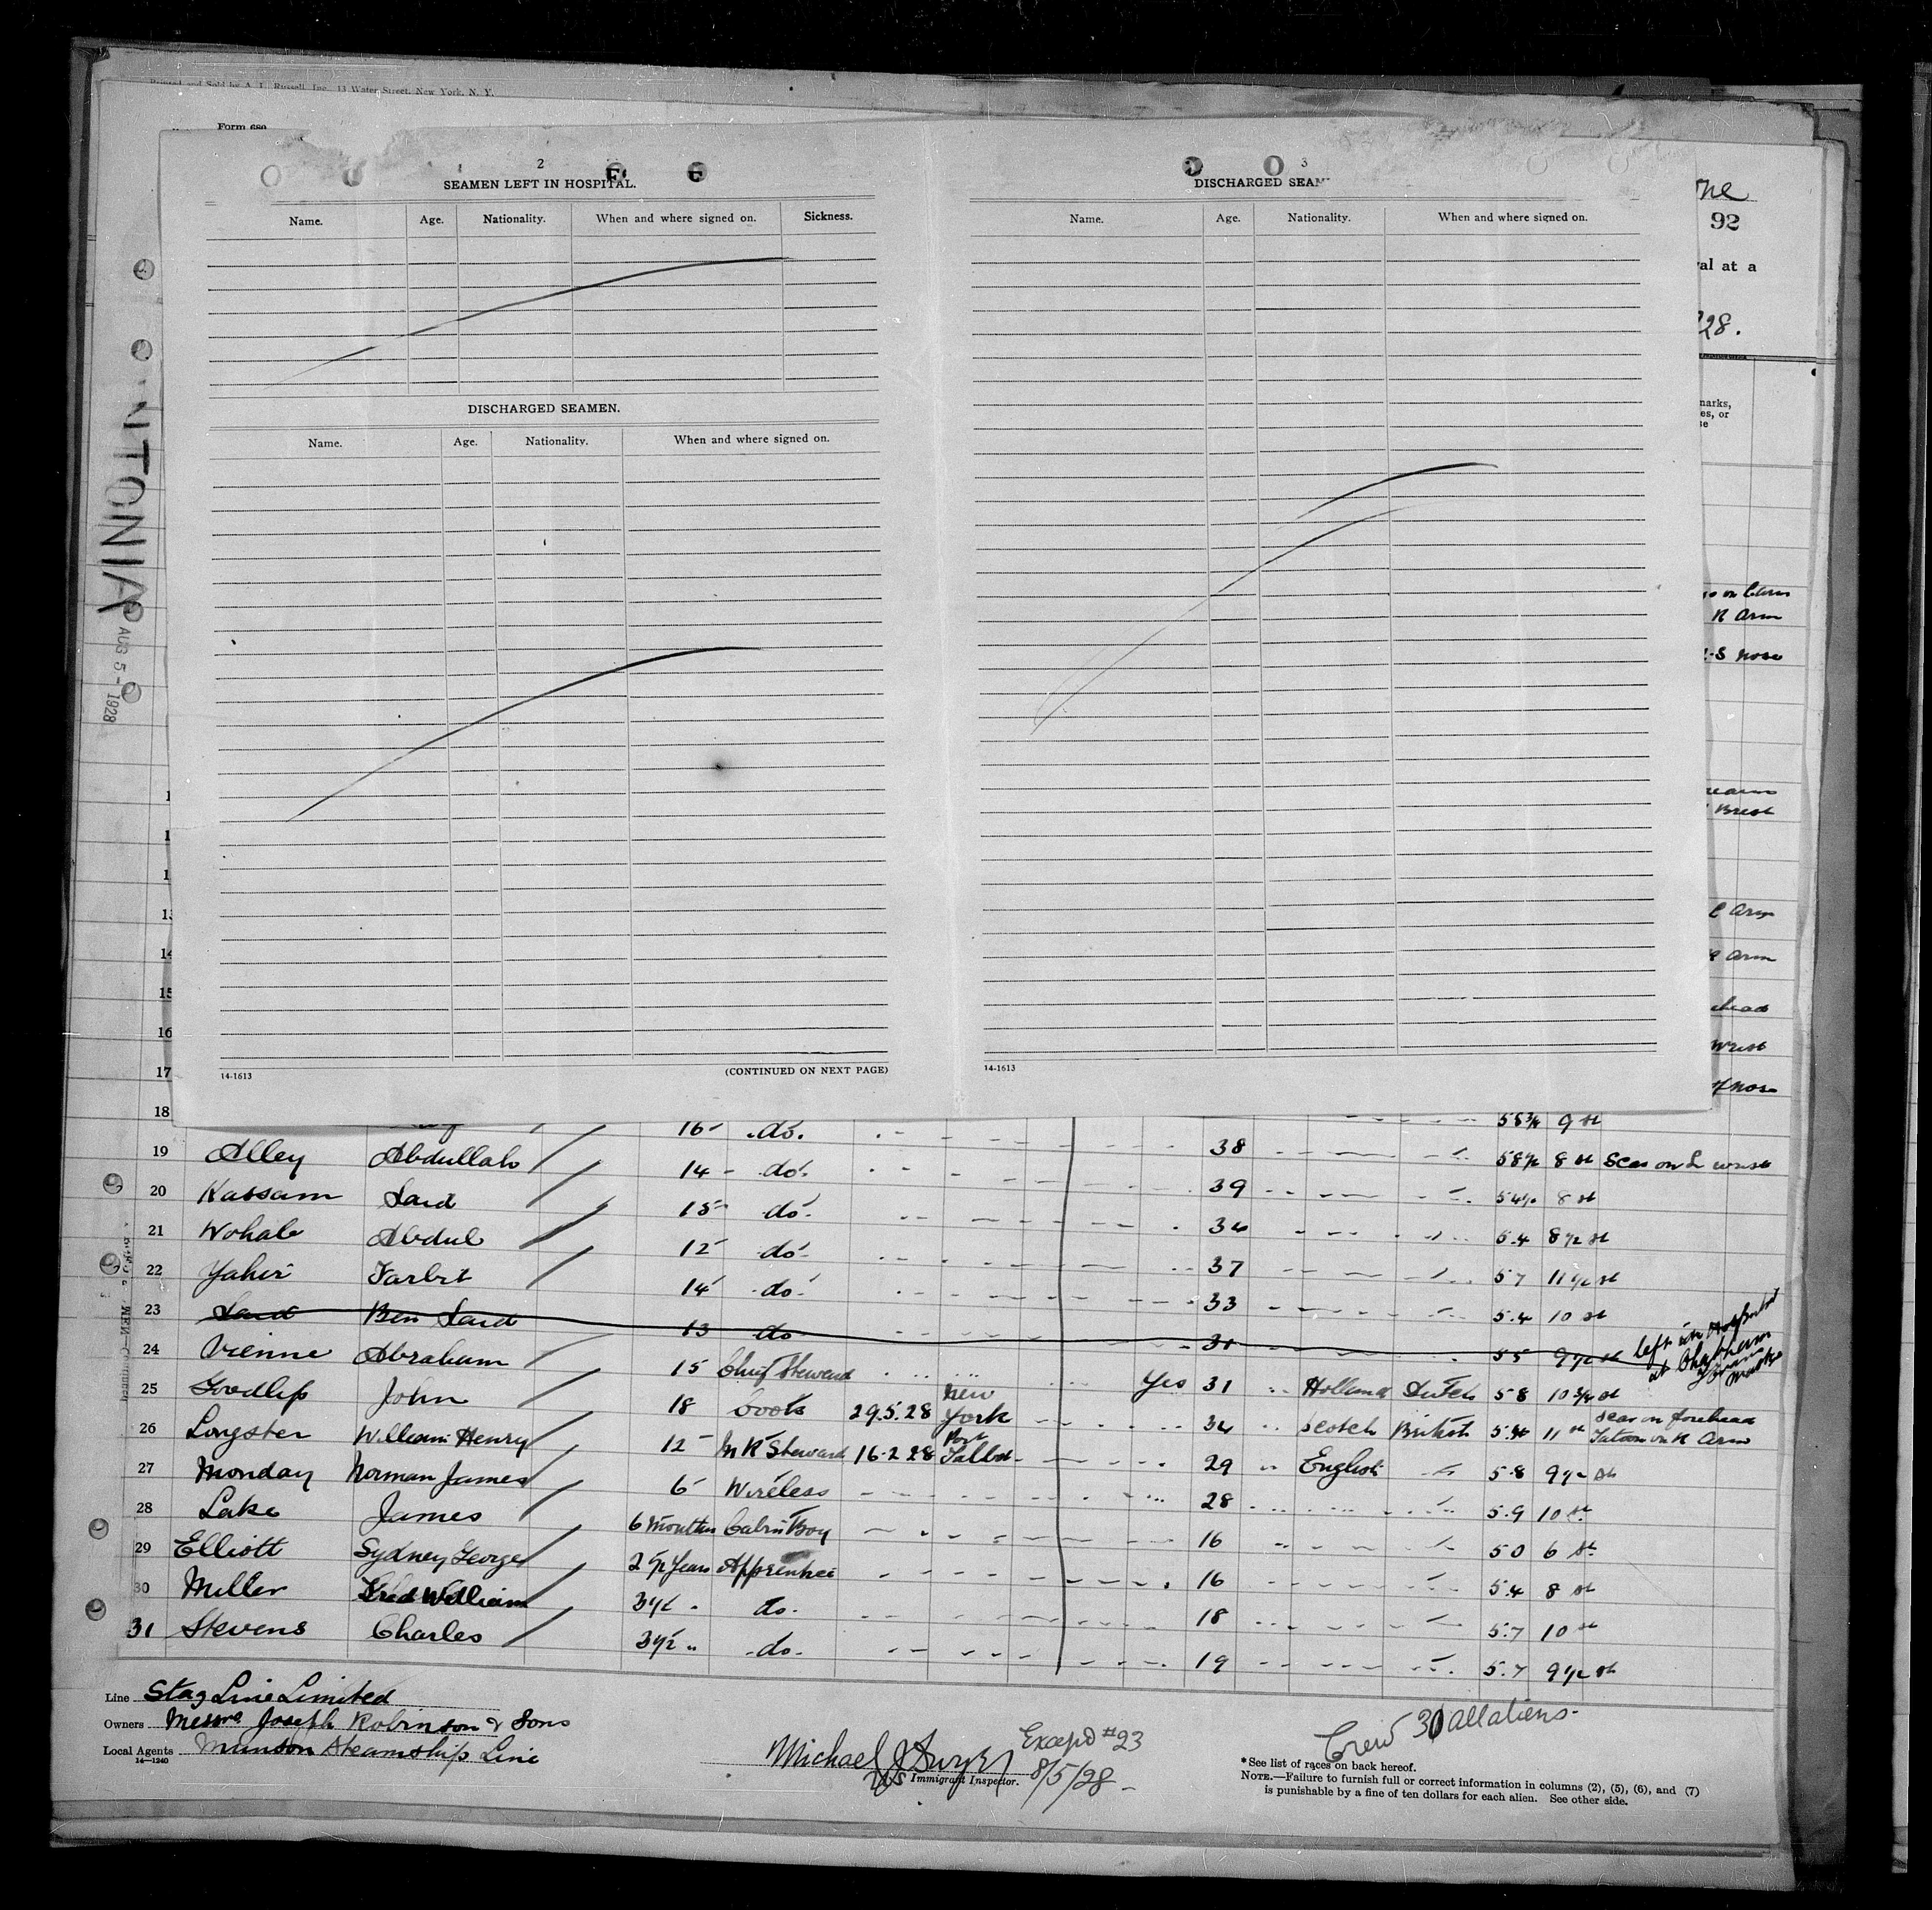 Printed and Sold by A. L. Russell, Inc., 13 Water Street, New York, N. Y.
Form 689
2
SEAMEN LEFT IN HOSPITAL.
Name. Age. Nationality. When and where signed on. Sickness.
DISCHARGED SEAMEN.
Name. Age. Nationality. When and where signed on.
14-1613 (CONTINUED ON NEXT PAGE)
3
DISCHARGED SEAM
Name. Age. Nationality. When and where signed on.
14-1613
92
al at a
28.
narks,
es, or
R Arm
Nose
Brest
Arm
Arm
Wrist
Nose
NTONIA
AUG 5 - 1928
13
14
15
16
17
18 16 do. 9 st
19 Alley Abdullah 14 do. 38 58½ 8 st Scar on L wrist
20 Kassam Said 15 do. 39 8 st
21 Wohab Abdul 12 do. 5.4 8½ st
22 Yahir Farbit 14 do. 37 5.7 11½ st
23 Said Ben Said 13 do 33 5.4 10 st
left in Hospital at Chatham
24 Vienne Abraham 15 Chief Steward 31 5 5 9½ st
25 Goodlip John 18 Cook 29.5.28 New York Yes 31 Holland Dutch 5 8 10¾ st
26 Longster William Henry 12 M R Steward 16-2-28 Port Talbot 34 Scotch British 11 st Scar on forehead Tatoo on R Arm
27 Monday Norman James 6 Wireless 29 English 5.8 9½ st
28 Lake James 6 Months Cabin Boy 28 5.9 10 st
29 Elliott Sydney George 2½ Years Apprentice 16 5 0 6 st
30 Miller Fred William 3½ do. 16 5.4 8 st
31 Stevens Charles 3½ " do. 18 5.7 10 st
19 5.7 9½ st
Line Stag Line Limited
Owners Messrs Joseph Robinson & Sons
Local Agents Munson Steamship Line
14-1240
Michael J Dwyer
US Immigrant Inspector.
Except #23
8/5/28
Crew 30 all aliens.
*See list of races on back hereof.
NOTE.—Failure to furnish full or correct information in columns (2), (5), (6), and (7)
is punishable by a fine of ten dollars for each alien. See other side.